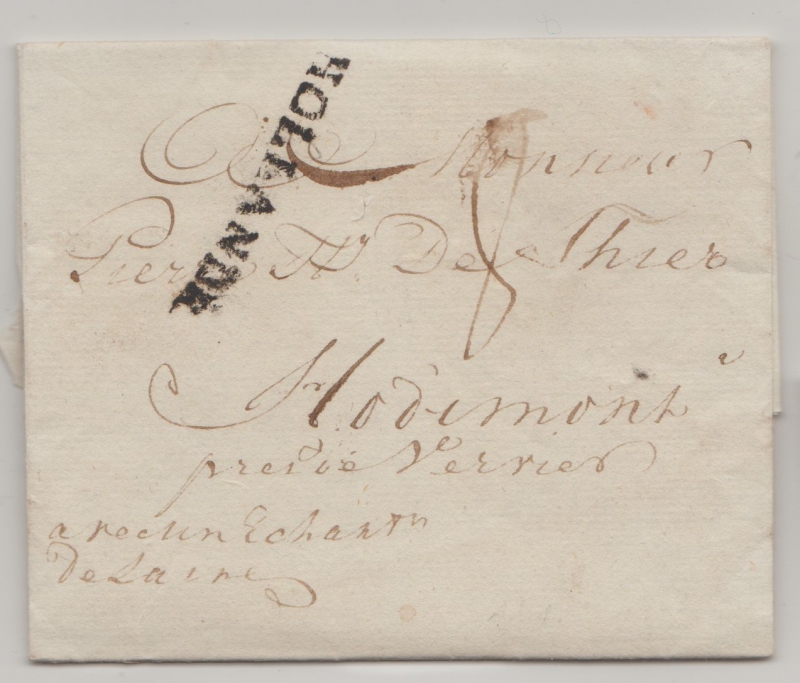 HOLLANDE
A Monsieur
Pier Hy De Thier
a
Hodimont
pres de Vervier
avec un Echantn
De Laine